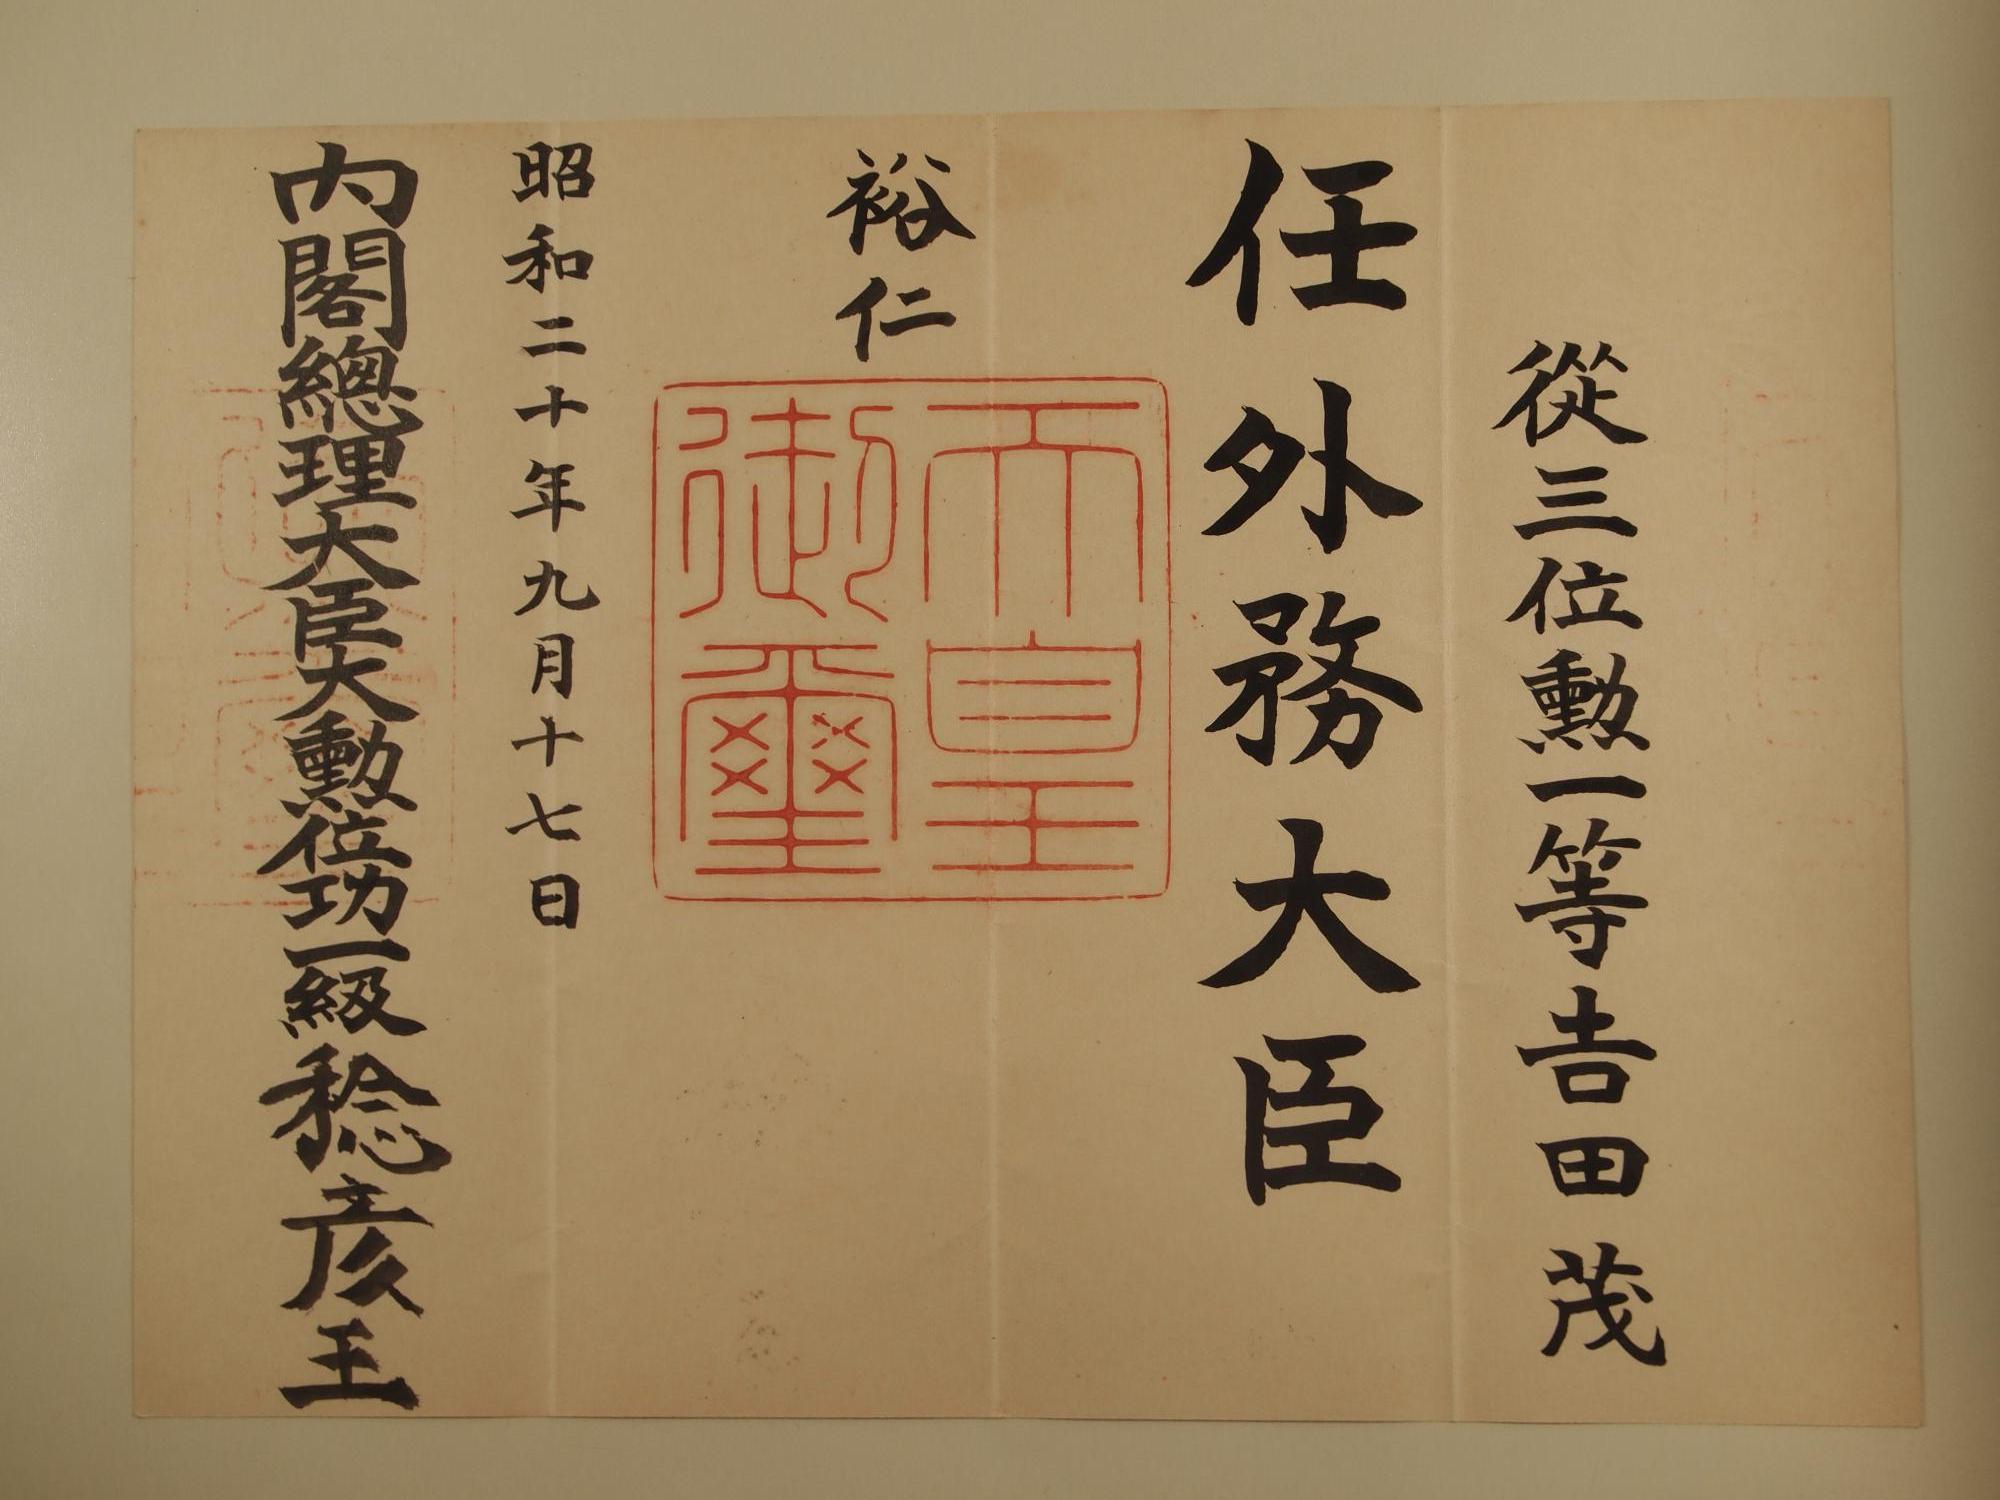 從三位勳一等吉田茂
任外務大臣
裕仁
天皇
御璽
昭和二十年九月十七日
內閣總理大臣大勳位功一級稔彥王